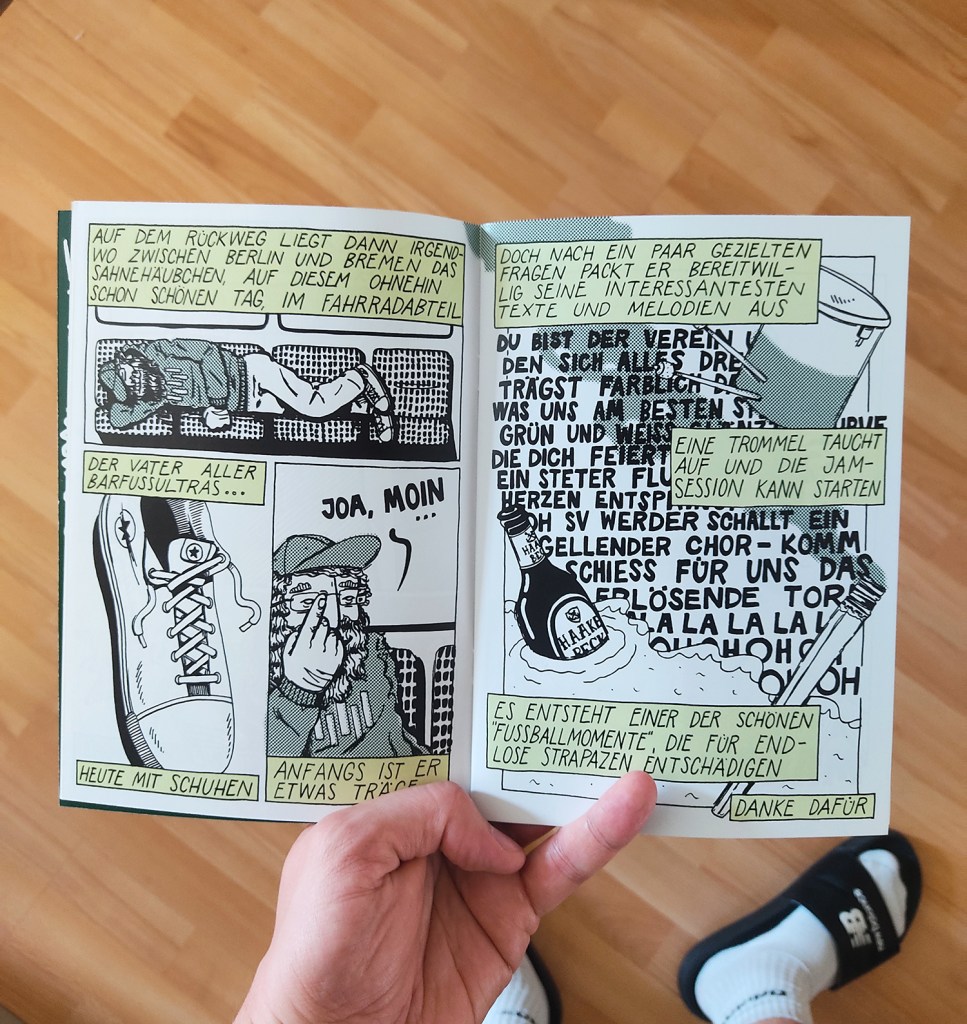 AUF DEM RÜCKWEG LIEGT DANN IRGEND-
WO ZWISCHEN BERLIN UND BREMEN DAS
SAHNEHÄUBCHEN, AUF DIESEM OHNEHIN
SCHON SCHÖNEN TAG, IM FAHRRADABTEIL
DER VATER ALLER
BARFUSSULTRAS...
HEUTE MIT SCHUHEN
JOA, MOIN
...
ANFANGS IST ER
ETWAS TRÄGE
DOCH NACH EIN PAAR GEZIELTEN
FRAGEN PACKT ER BEREITWIL-
LIG SEINE INTERESSANTESTEN
TEXTE UND MELODIEN AUS
DU BIST DER VEREIN
DEN SICH ALLES
TRÄGST FARBLICH
WAS UNS AM BESTEN
GRÜN UND WEISS
DIE DICH FEIERT
EIN STETER
HERZEN
OH SV WERDER SCHALLT EIN
GELLENDER CHOR - KOMM
SCHIESS FÜR UNS DAS
ERLÖSENDE TOR
LA LA LA LA
EINE TROMMEL TAUCHT
AUF UND DIE JAM-
SESSION KANN STARTEN
HAAKE
BECK
ES ENTSTEHT EINER DER SCHÖNEN
"FUSSBALLMOMENTE", DIE FÜR END-
LOSE STRAPAZEN ENTSCHÄDIGEN
DANKE DAFÜR
new balance